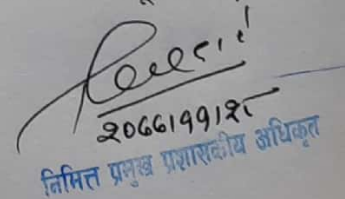 २०७७।११।२८
निमित्त प्रमुख प्रशासकीय अधिकृत